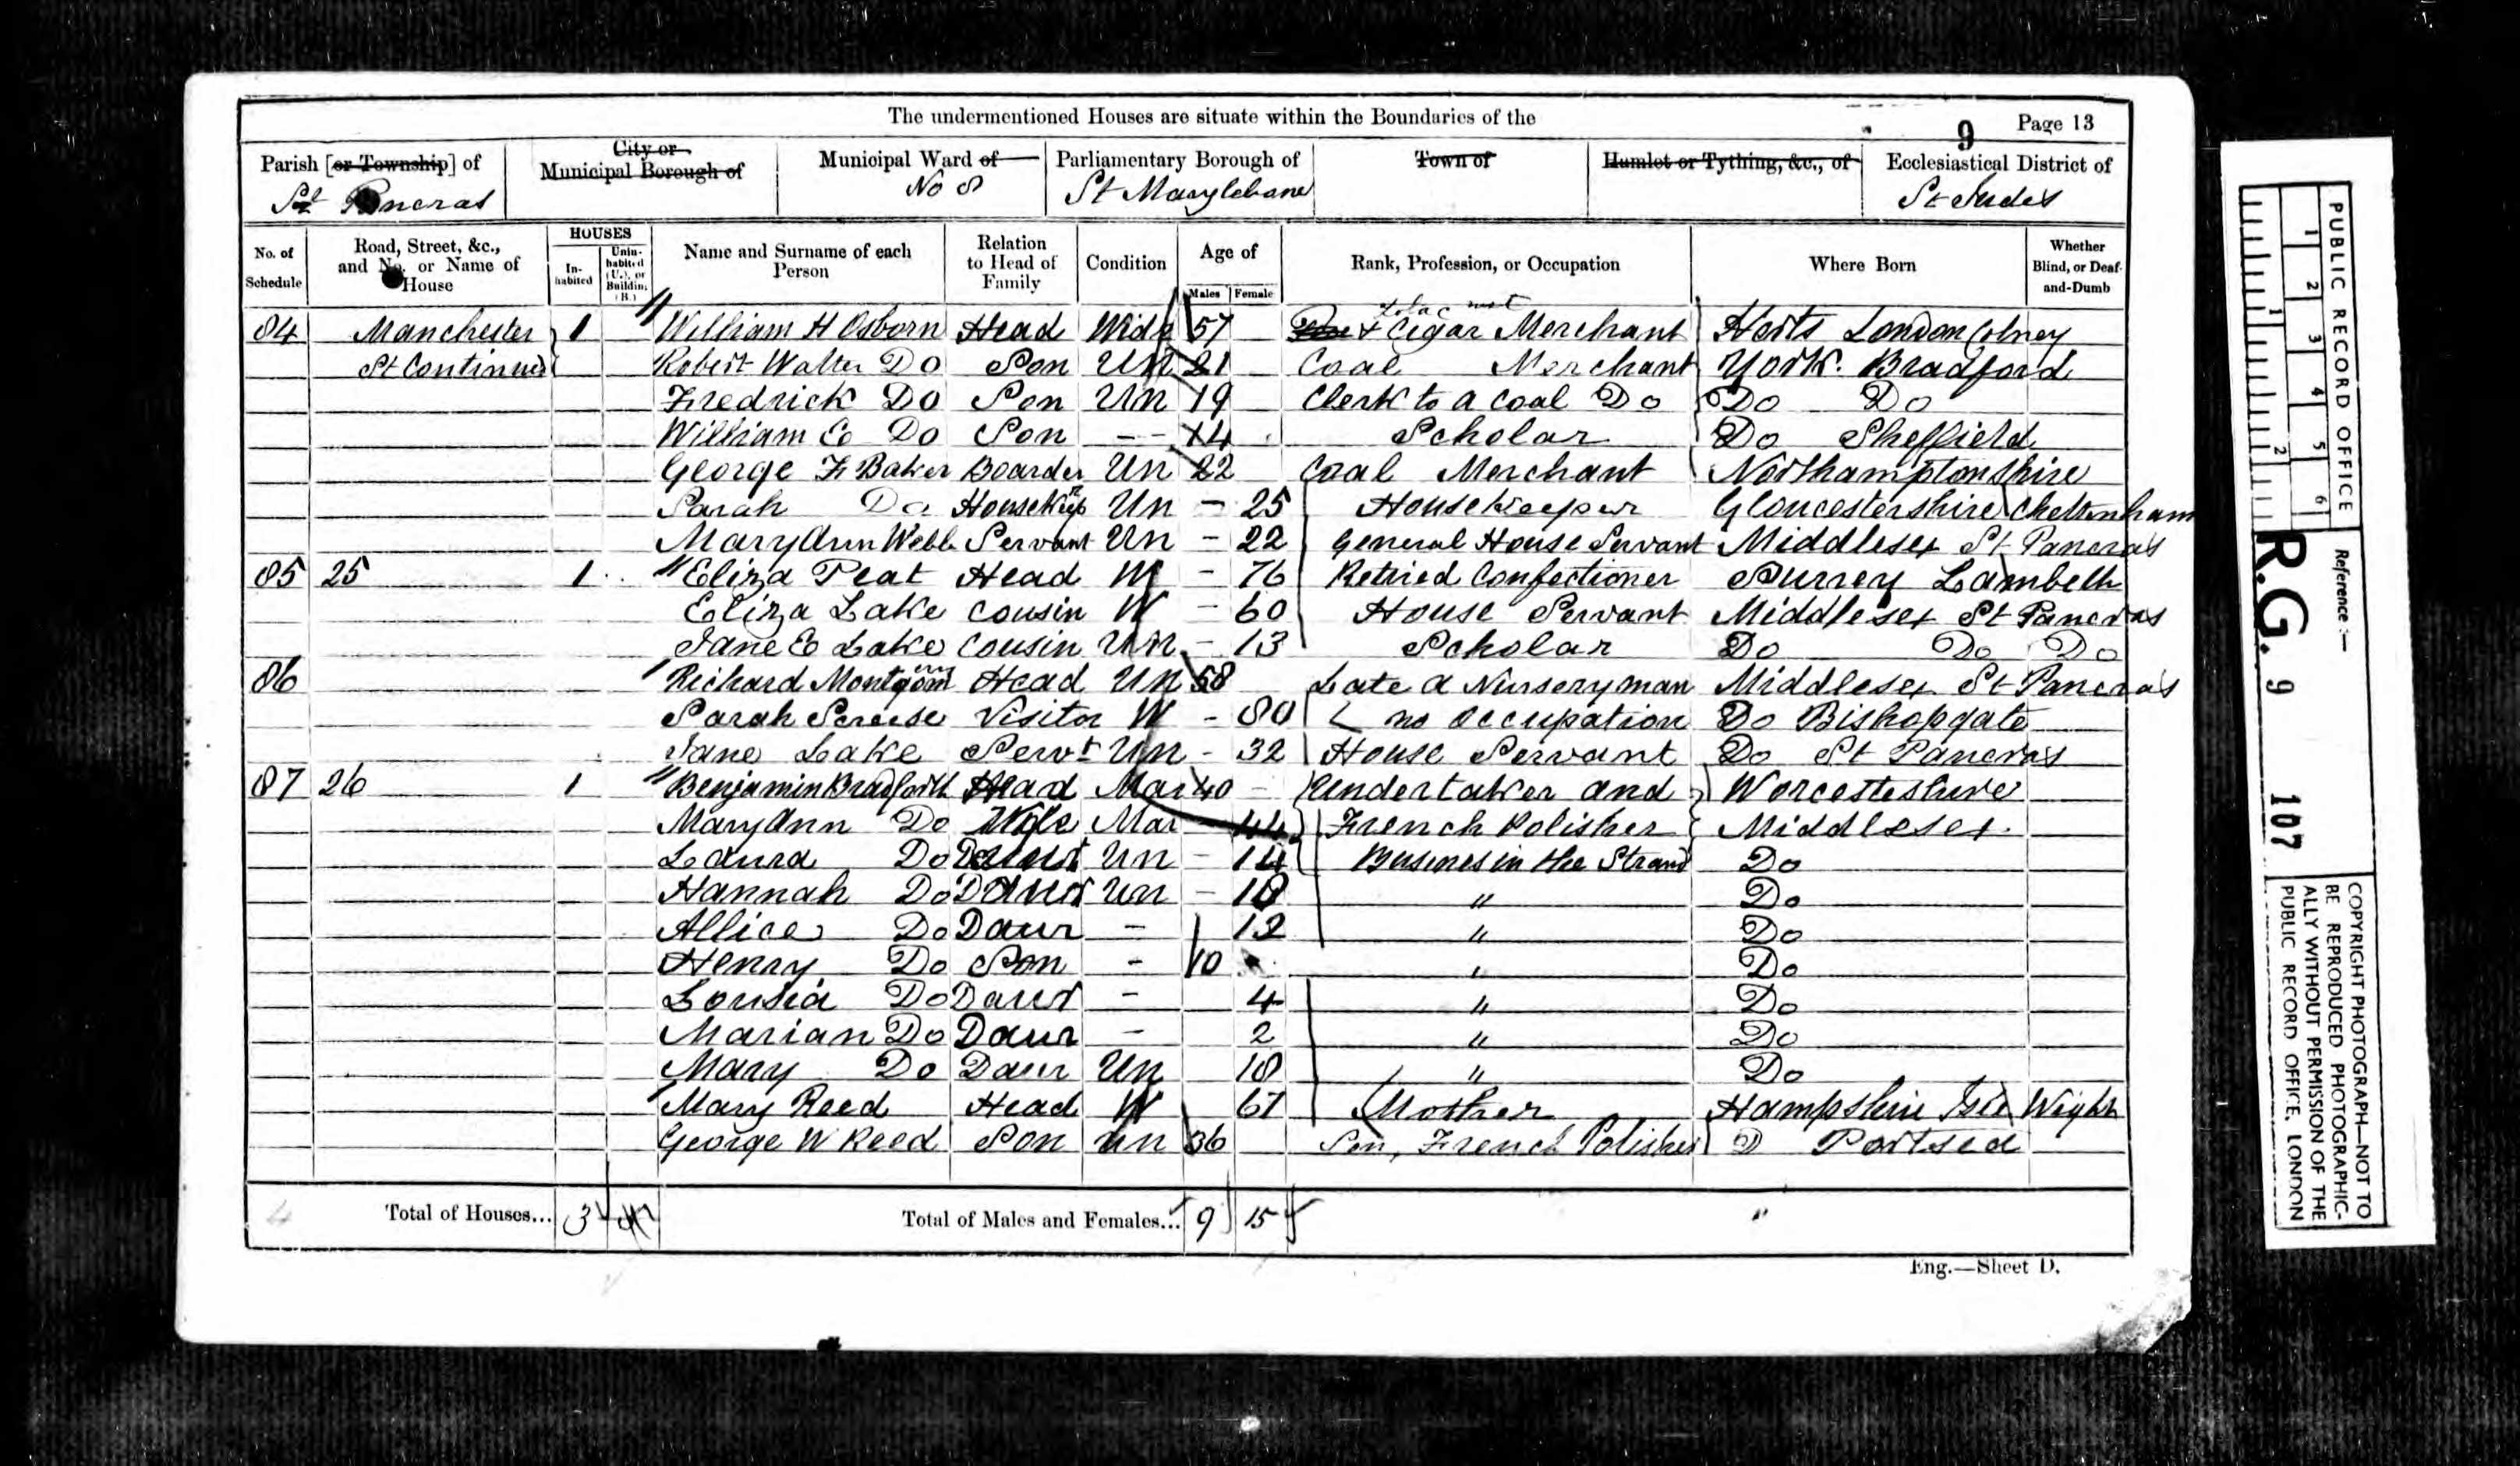 The undermentioned Houses are situate within the Boundaries of the
9 Page 13
Parish [or Township] of St Pancras
City or Municipal Borough of
Municipal Ward of No 8
Parliamentary Borough of St Marylebone
Town of
Hamlet or Tything, &c., of
Ecclesiastical District of St Judes
No. of Schedule
Road, Street, &c., and No. or Name of House
HOUSES
In-habited
Unin-habited (U.), or Building (B.)
Name and Surname of each Person
Relation to Head of Family
Condition
Age of
Males Female
Rank, Profession, or Occupation
Where Born
Whether Blind, or Deaf-and-Dumb
84 Manchester 1 William H Osborn Head Widr 57 & Cigar Merchant Herts London Colney
St Continued Robert Walter Do Son Un 21 Coal Merchant York. Bradford
Fredrick Do Son Un 19 Clerk to a Coal Do Do Do
William E Do Son - - 14 Scholar Do Sheffield
George F Baker Boarder Un 22 Coal Merchant Northamptonshire
Sarah Do Housekeepr Un - 25 Housekeeper Gloucestershire Cheltenham
Mary Ann Webb Servant Un - 22 General House Servant Middlesex St Pancras
85 25 1 Eliza Peat Head W - 76 Retired Confectioner Surrey Lambeth
Eliza Lake Cousin W - 60 House Servant Middlesex St Pancras
Jane E Lake Cousin Un - 13 Scholar Do Do Do
86 Richard Montgomry Head Un 58 Late a Nurseryman Middlesex St Pancras
Sarah Visitor W - 80 no Occupation Do Bishopgate
Jane Lake Servt Un - 32 House Servant Do St Pancras
87 26 1 Benjamin Bradforth Head Mar 40 - Undertaker and Worcestershire
Mary Ann Do Wife Mar 44 French Polisher Middlesex.
Laura Do Daur Un - 14 Busines in the Strand Do
Hannah Do Daur Un - 18 " Do
Allice Do Daur - 12 " Do
Henry Do Son - 10 " Do
Lousia Do Daur - 4 " Do
Marian Do Daur - 2 " Do
Mary Do Daur Un 18 " Do
Mary Reed Head W 67 Mother Hampshire Isle Wight
George W Reed Son Un 36 Son, French Polisher D Portsea
4 Total of Houses... 3
Total of Males and Females... 9 15 "
Eng.—Sheet D.
PUBLIC RECORD OFFICE
1 2 3 4 5 6
1 2
Reference :—
R.G. 9 107
COPYRIGHT PHOTOGRAPH—NOT TO
BE REPRODUCED PHOTOGRAPHIC-
ALLY WITHOUT PERMISSION OF THE
PUBLIC RECORD OFFICE, LONDON